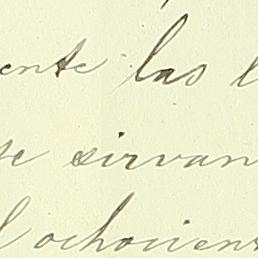 ente las l
se sirvan
l ochocient